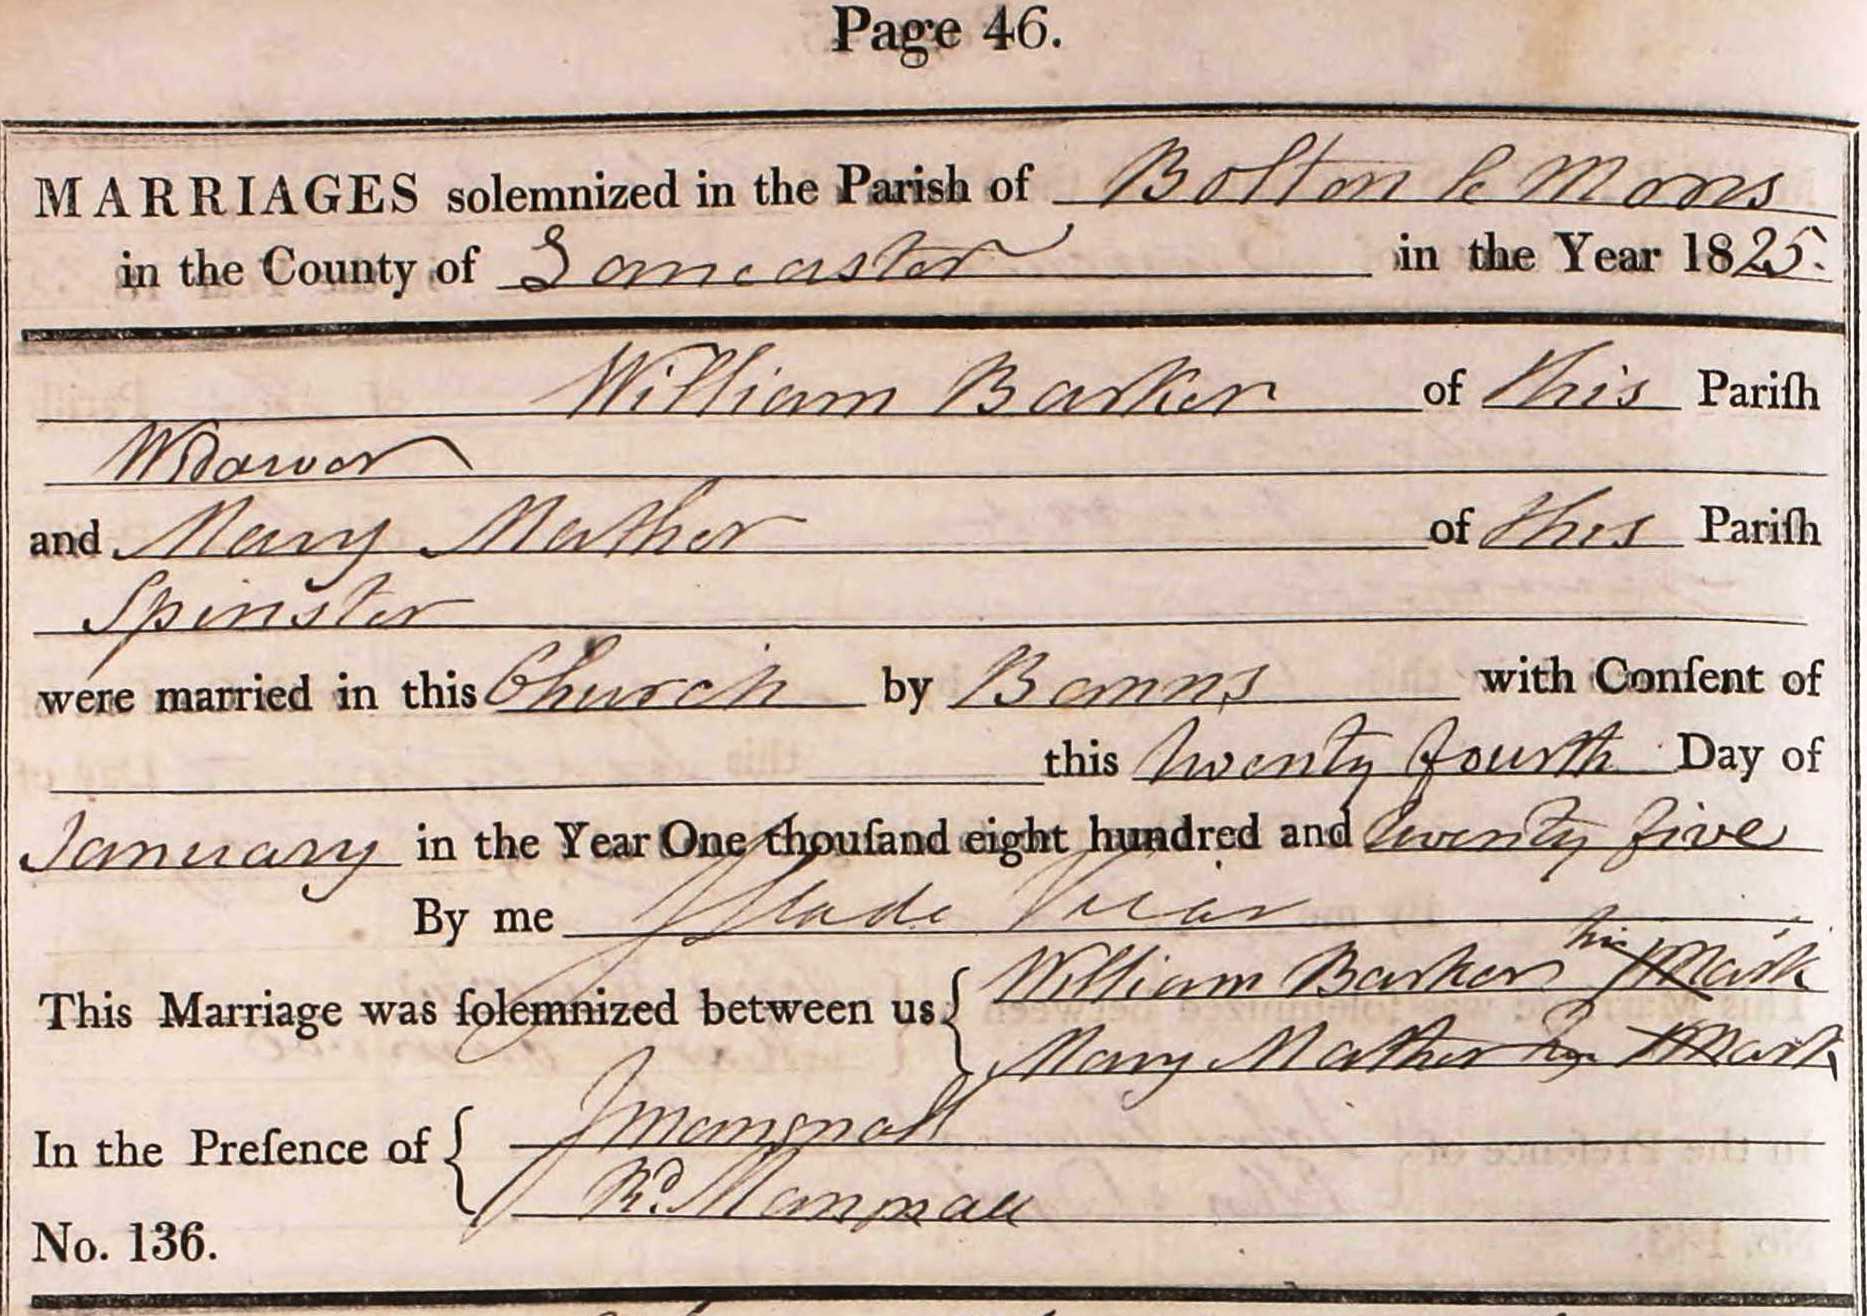 Page 46.
MARRIAGES solemnized in the Parish of Bolton le Moors
in the County of Lancaster in the Year 1825.
William Barker of this Pariſh
Widower
and Mary Mather of this Pariſh
Spinster
were married in this Church by Banns with Conſent of
this twenty fourth Day of
January in the Year One thouſand eight hundred and twenty five
By me J Slade Vicar
This Marriage was ſolemnized between us { William Barker his X Mark
Mary Mather her X Mark
In the Preſence of { J Mangnall
Rd. Mangnall
No. 136.